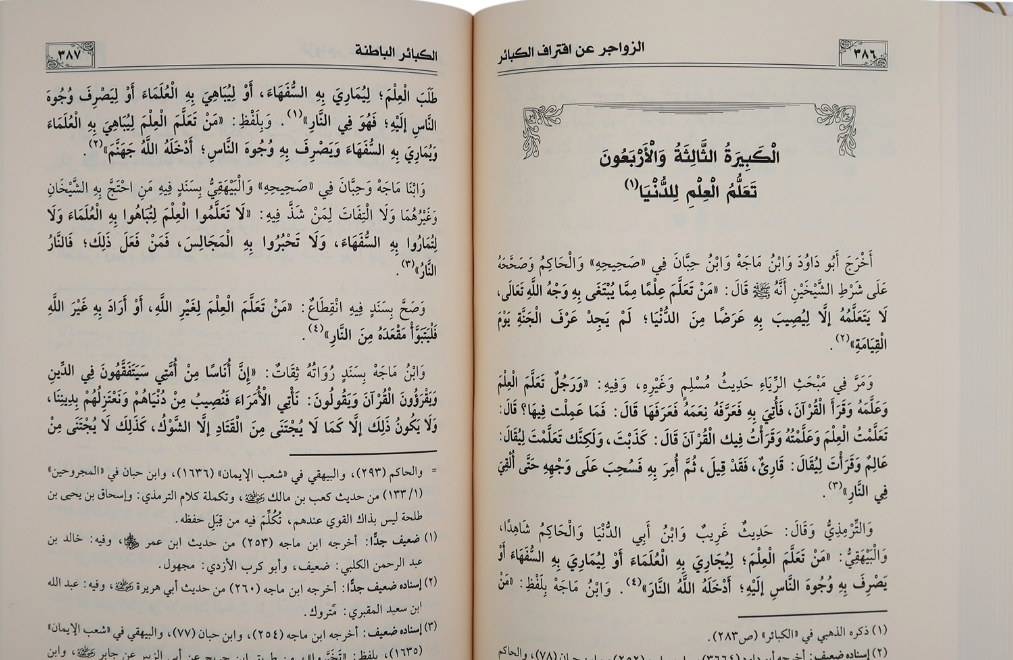 ٣٨٦
الزواجر عن اقتراف الكبائر
الْكَبِيرَةُ الثَّالِثَةُ وَالْأَرْبَعُونَ
تَعَلُّمُ الْعِلْمِ لِلدُّنْيَا(١)
أَخْرَجَ أَبُو دَاوُدَ وَابْنُ مَاجَهْ وَابْنُ حِبَّانَ فِي «صَحِيحِهِ» وَالْحَاكِمُ وَصَحَّحَهُ
عَلَى شَرْطِ الشَّيْخَيْنِ أَنَّهُ ﷺ قَالَ: «مَنْ تَعَلَّمَ عِلْمًا مِمَّا يُبْتَغَى بِهِ وَجْهُ اللَّهِ تَعَالَى،
لَا يَتَعَلَّمُهُ إِلَّا لِيُصِيبَ بِهِ عَرَضًا مِنَ الدُّنْيَا؛ لَمْ يَجِدْ عَرْفَ الْجَنَّةِ يَوْمَ
الْقِيَامَةِ»(٢).
وَمَرَّ فِي مَبْحَثِ الرِّيَاءِ حَدِيثُ مُسْلِمٍ وَغَيْرِهِ، وَفِيهِ: «وَرَجُلٌ تَعَلَّمَ الْعِلْمَ
وَعَلَّمَهُ وَقَرَأَ الْقُرْآنَ، فَأُتِيَ بِهِ فَعَرَّفَهُ نِعَمَهُ فَعَرَفَهَا قَالَ: فَمَا عَمِلْتَ فِيهَا؟ قَالَ:
تَعَلَّمْتُ الْعِلْمَ وَعَلَّمْتُهُ وَقَرَأْتُ فِيكَ الْقُرْآنَ قَالَ: كَذَبْتَ، وَلَكِنَّكَ تَعَلَّمْتَ لِيُقَالَ:
عَالِمٌ وَقَرَأْتَ لِيُقَالَ: قَارِئٌ، فَقَدْ قِيلَ، ثُمَّ أُمِرَ بِهِ فَسُحِبَ عَلَى وَجْهِهِ حَتَّى أُلْقِيَ
فِي النَّارِ»(٣).
وَالتِّرْمِذِيُّ وَقَالَ: حَدِيثٌ غَرِيبٌ وَابْنُ أَبِي الدُّنْيَا وَالْحَاكِمُ شَاهِدًا،
وَالْبَيْهَقِيُّ: «مَنْ تَعَلَّمَ الْعِلْمَ؛ لِيُجَارِيَ بِهِ الْعُلَمَاءَ أَوْ لِيُمَارِيَ بِهِ السُّفَهَاءَ أَوْ
يَصْرِفَ بِهِ وُجُوهَ النَّاسِ إِلَيْهِ؛ أَدْخَلَهُ اللَّهُ النَّارَ»(٤). وَابْنُ مَاجَهْ بِلَفْظِ: «مَنْ
(١) ذكره الذهبي في «الكبائر» (ص٢٨٣).
(٢) إسناده ضعيف: أخرجه أبو داود (٣٦٦٤)، وابن حبان (٧٨)، والحاكم
الكبائر الباطنة
٣٨٧
طَلَبَ الْعِلْمَ؛ لِيُمَارِيَ بِهِ السُّفَهَاءَ، أَوْ لِيُبَاهِيَ بِهِ الْعُلَمَاءَ أَوْ لِيَصْرِفَ وُجُوهَ
النَّاسِ إِلَيْهِ؛ فَهُوَ فِي النَّارِ»(١). وَبِلَفْظِ: «مَنْ تَعَلَّمَ الْعِلْمَ لِيُبَاهِيَ بِهِ الْعُلَمَاءَ
وَيُمَارِيَ بِهِ السُّفَهَاءَ وَيَصْرِفَ بِهِ وُجُوهَ النَّاسِ؛ أَدْخَلَهُ اللَّهُ جَهَنَّمَ»(٢).
وَابْنَا مَاجَهْ وَحِبَّانَ فِي «صَحِيحِهِ» وَالْبَيْهَقِيُّ بِسَنَدٍ فِيهِ مَنِ احْتَجَّ بِهِ الشَّيْخَانِ
وَغَيْرُهُمَا وَلَا الْتِفَاتَ لِمَنْ شَذَّ فِيهِ: «لَا تَعَلَّمُوا الْعِلْمَ لِتُبَاهُوا بِهِ الْعُلَمَاءَ وَلَا
لِتُمَارُوا بِهِ السُّفَهَاءَ، وَلَا تَحْبُرُوا بِهِ الْمَجَالِسَ، فَمَنْ فَعَلَ ذَلِكَ؛ فَالنَّارُ
النَّارُ»(٣).
وَصَحَّ بِسَنَدٍ فِيهِ انْقِطَاعٌ: «مَنْ تَعَلَّمَ الْعِلْمَ لِغَيْرِ اللَّهِ، أَوْ أَرَادَ بِهِ غَيْرَ اللَّهِ
فَلْيَتَبَوَّأْ مَقْعَدَهُ مِنَ النَّارِ»(٤).
وَابْنُ مَاجَهْ بِسَنَدٍ رُوَاتُهُ ثِقَاتٌ: «إِنَّ أُنَاسًا مِنْ أُمَّتِي سَيَتَفَقَّهُونَ فِي الدِّينِ
وَيَقْرَؤُونَ الْقُرْآنَ وَيَقُولُونَ: نَأْتِي الْأُمَرَاءَ فَنُصِيبُ مِنْ دُنْيَاهُمْ وَنَعْتَزِلُهُمْ بِدِينِنَا،
وَلَا يَكُونُ ذَلِكَ إِلَّا كَمَا لَا يُجْتَنَى مِنَ الْقَتَادِ إِلَّا الشَّوْكُ، كَذَلِكَ لَا يُجْتَنَى مِنْ
= والحاكم (٢٩٣)، والبيهقي في «شعب الإيمان» (١٦٣٦)، وابن حبان في «المجروحين»
(١/١٣٣) من حديث كعب بن مالك رضي الله عنه، وتكملة كلام الترمذي: وإسحاق بن يحيى بن
طلحة ليس بذاك القوي عندهم، تُكُلِّمَ فيه من قِبَلِ حفظه.
(١) ضعيف جدًّا: أخرجه ابن ماجه (٢٥٣) من حديث ابن عمر رضي الله عنهما، وفيه: خالد بن
عبد الرحمن الكلبي: ضعيف، وأبو كرب الأزدي: مجهول.
(٢) إسناده ضعيف جدًّا: أخرجه ابن ماجه (٢٦٠) من حديث أبي هريرة رضي الله عنه، وفيه: عبد الله
ابن سعيد المقبري: متروك.
(٣) إسناده ضعيف: أخرجه ابن ماجه (٢٥٤)، وابن حبان (٧٧)، والبيهقي في «شعب الإيمان»
(١٦٣٥)، بلفظ: من طريق ابن جريج عن أبي الزبير عن جابر رضي الله عنه، وابن